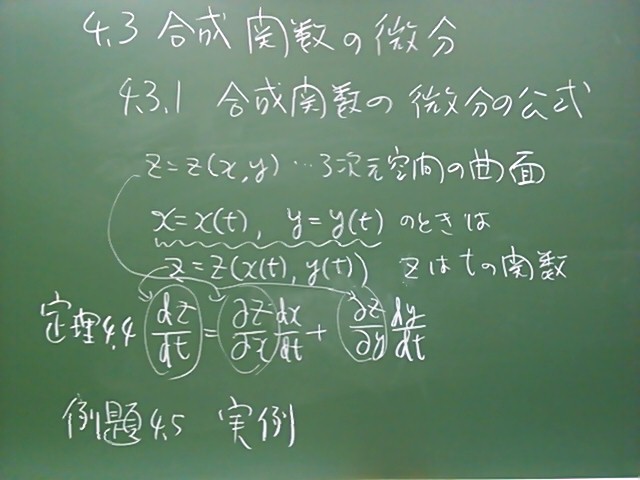 4.3 合成関数の微分
4.3.1 合成関数の微分の公式
z=z(x,y) …3次元空間の曲面
x=x(t), y=y(t) のときは
z=z(x(t),y(t)) zはtの関数
定理4.4 dz/dt = ∂z/∂x dx/dt + ∂z/∂y dy/dt
例題4.5 実例